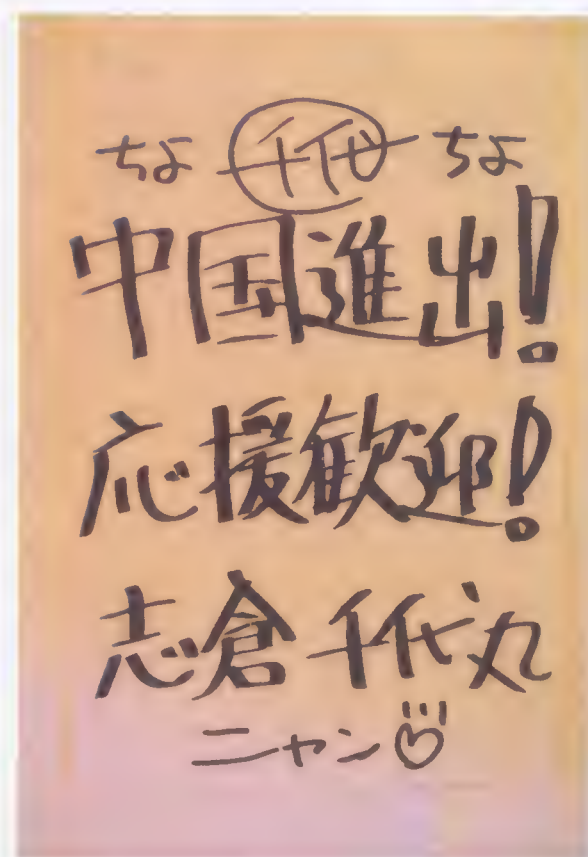 ちよ 千代 ちよ
中国進出!
応援歓迎!
志倉千代丸
ニャン♡